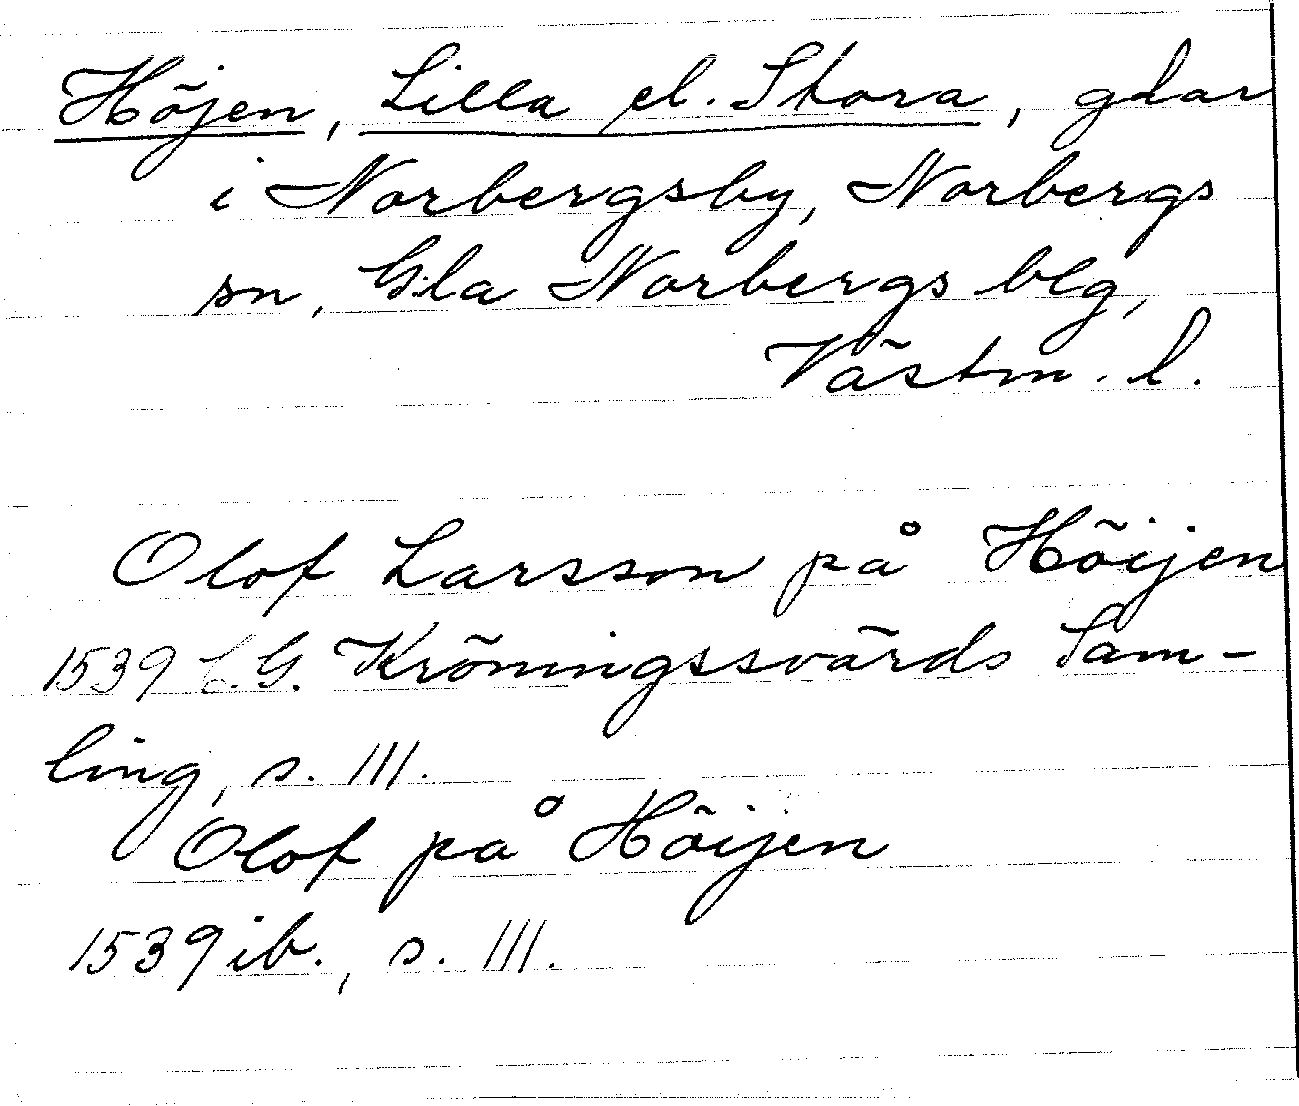 Höjen, Lilla el. Stora, gdar
i Norbergsby, Norbergs
sn, Gla Norbergs blg,
Västm. l.
Olof Larsson på Höijen
1539 C.G. Kröningssvärds Sam-
ling, s. 111.
Olof på Höijen
1539 ib., s. 111.